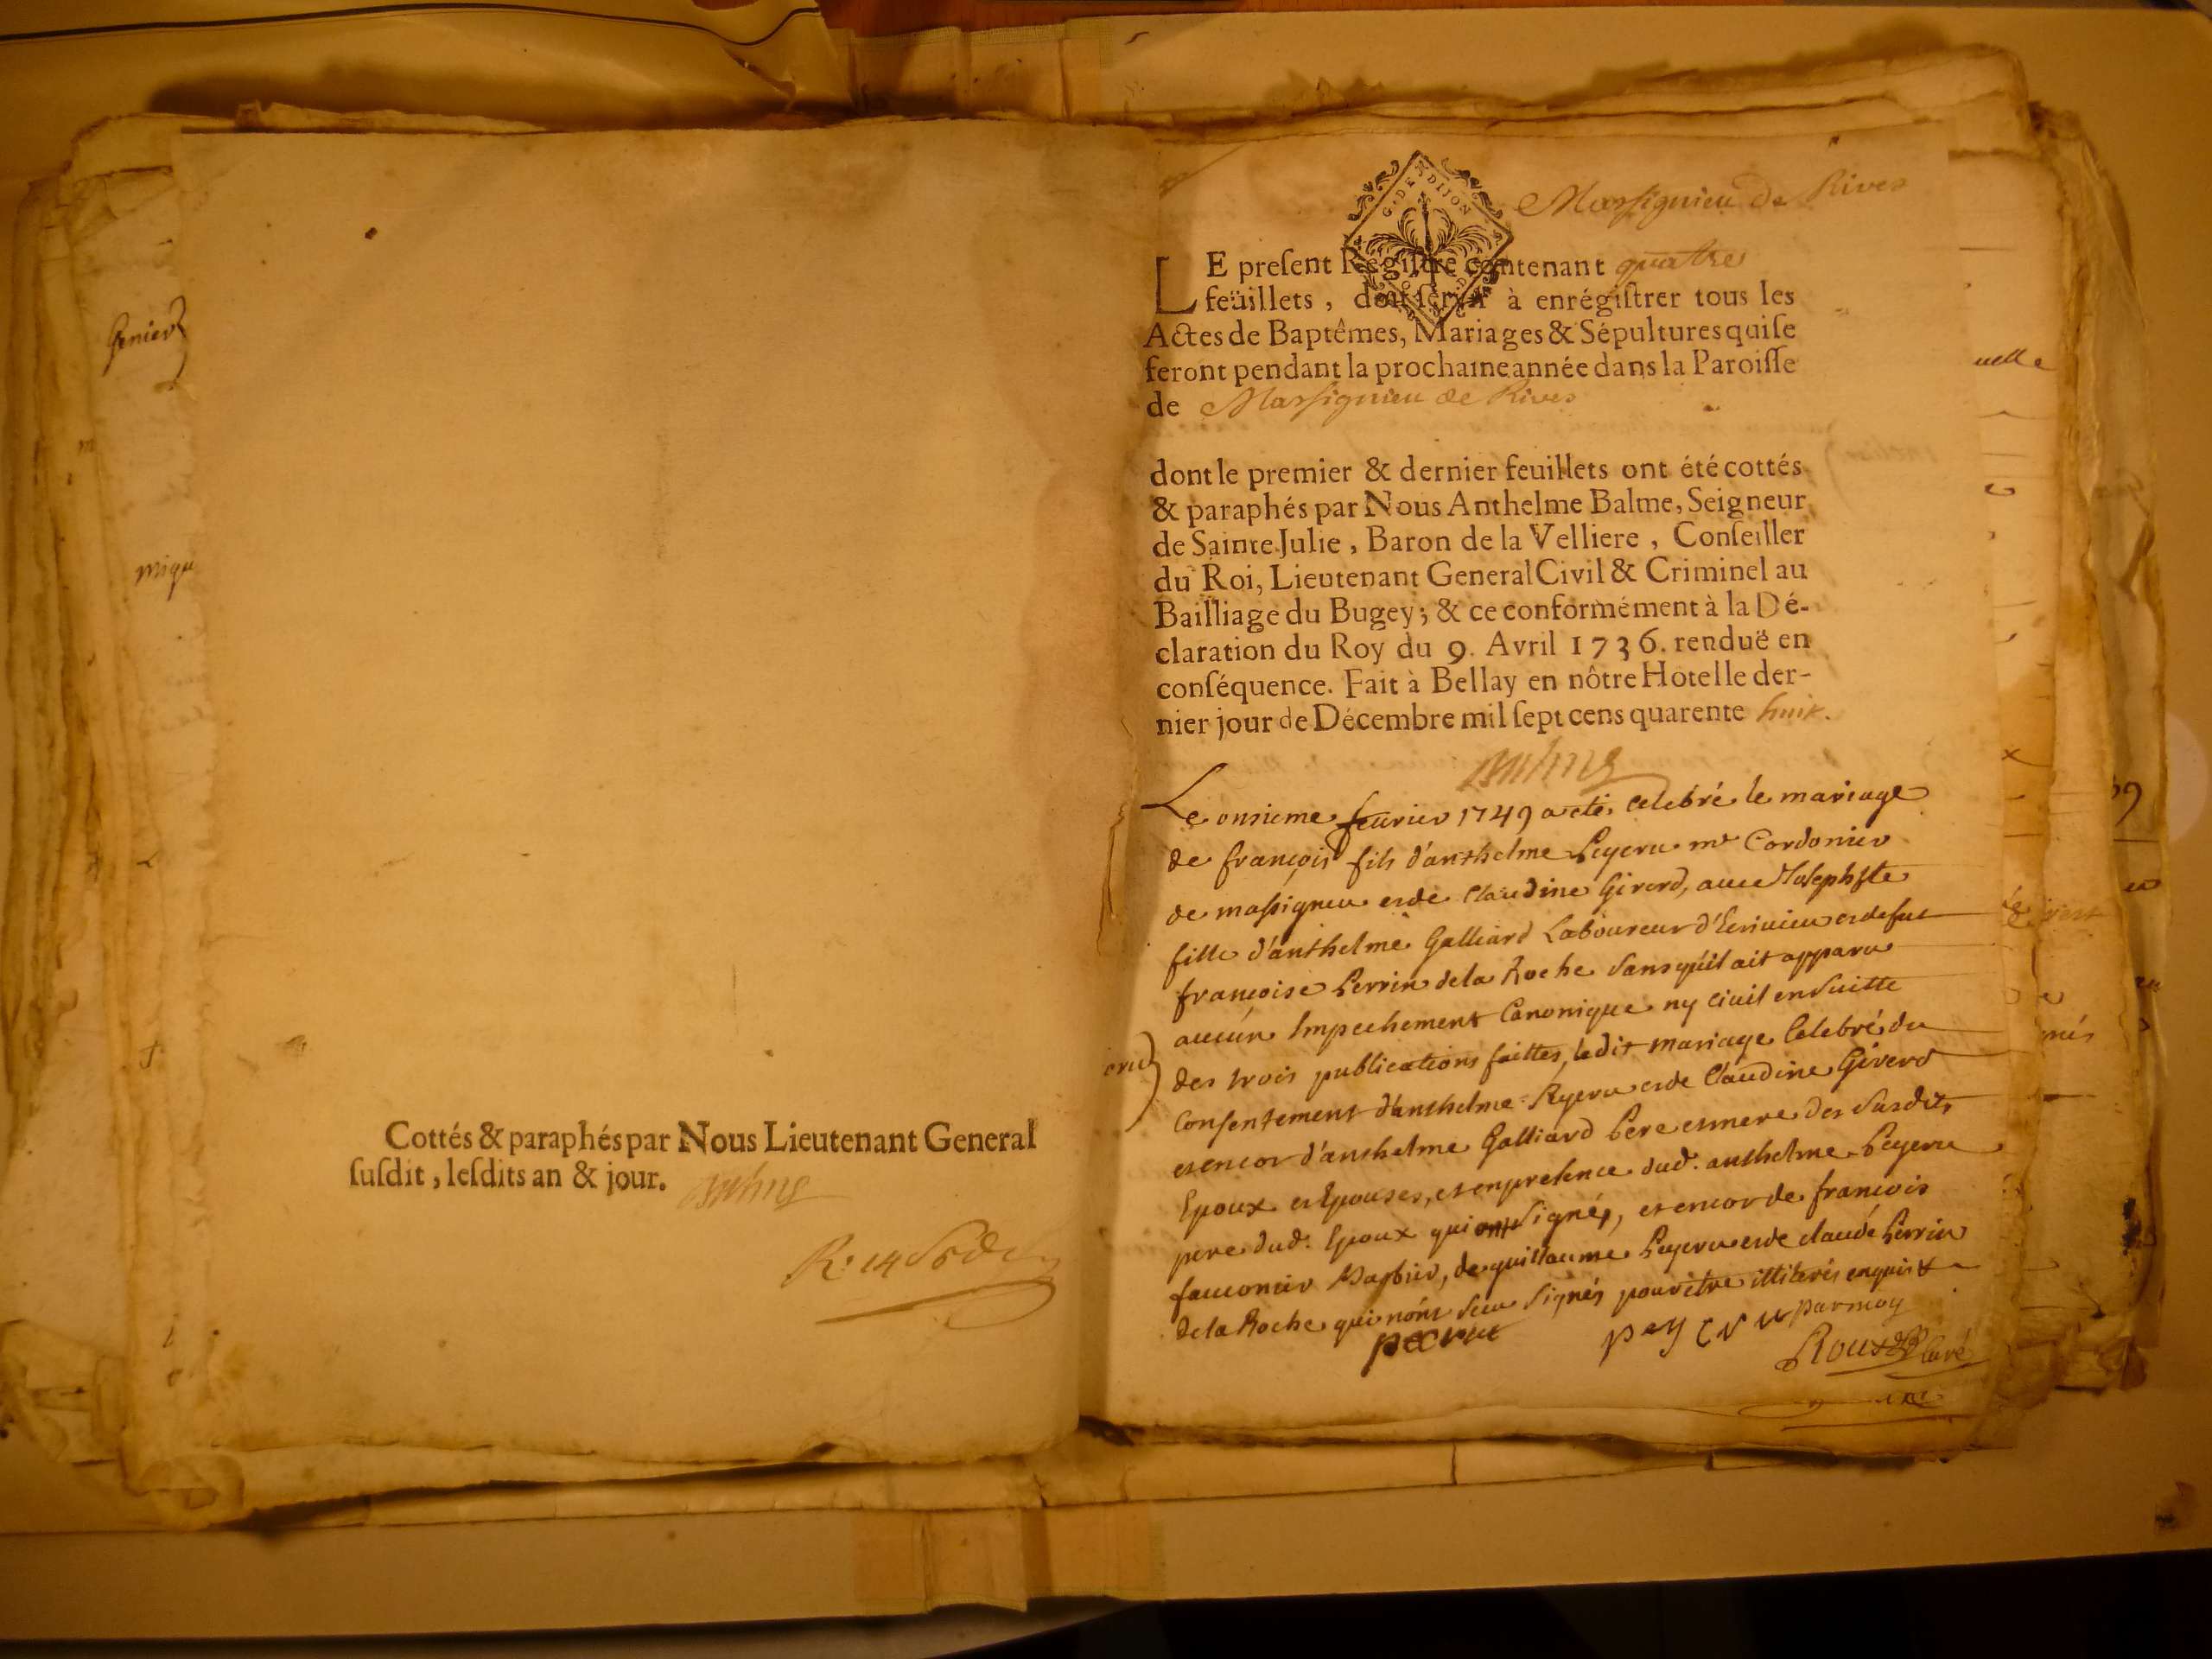 Genier
miqu
Cottés & paraphés par Nous Lieutenant General
ſuſdit, leſdits an & jour.
G. DE DIJON
Massignieu de Rives
LE preſent Regiſtre contenant quatre
feüillets, doit ſervir à enrégiſtrer tous les
Actes de Baptêmes, Mariages & Sépultures qui ſe
feront pendant la prochaine année dans la Paroiſſe
de Massignieu de Rives
dont le premier & dernier feuillets ont été cottés
& paraphés par Nous Anthelme Balme, Seigneur
de Sainte Julie, Baron de la Velliere, Conſeiller
du Roi, Lieutenant General Civil & Criminel au
Bailliage du Bugey; & ce conformément à la Dé-
claration du Roy du 9. Avril 1736. renduë en
conſéquence. Fait à Bellay en nôtre Hotel le der-
nier jour de Décembre mil ſept cens quarente huit.
Le onsieme feurier 1749 a eté celebré le mariage
de françois fils d'anthelme Peyeru mᵉ Cordonier
de massigneu et de Claudine Girerd, auec Josephte
fille d'anthelme Galliard Laboureur d'Ecriuieu et de fut
francoise Perrin de la Roche sans qu'il ait apparu
aucun Impechement Canonique ny Ciuil en suitte
des trois publications faittes, ledit mariage Celebré du
Consentement d'anthelme Peyeru et de Claudine Girerd
et encor d'anthelme Galliard Pere et mere des susdits
Epoux et Epouses, et en presence dud. anthelme Peyeru
pere dud. Epoux qui ont signés, et encor de francois
fauconier Barbier, de guillaume Peyeru et de claude Perrin
de la Roche qui n'ont sceu signés pour être illiterés enquis &
par moy
Roux Curé